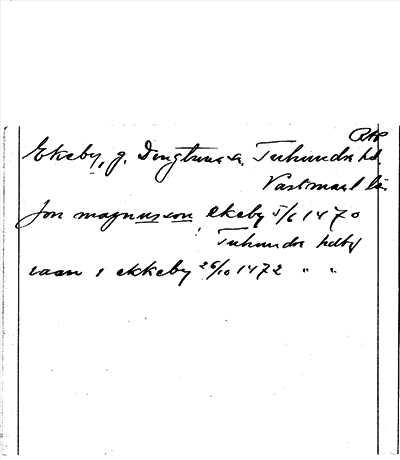 RAP
Ekeby, g. Dingtuna s. Tuhundra hd.
Västmanl. län
Jon magnusson, ekeby 5/6 1470
Tuhundra hdbr
laan i ekkeby 26/10 1472 " "